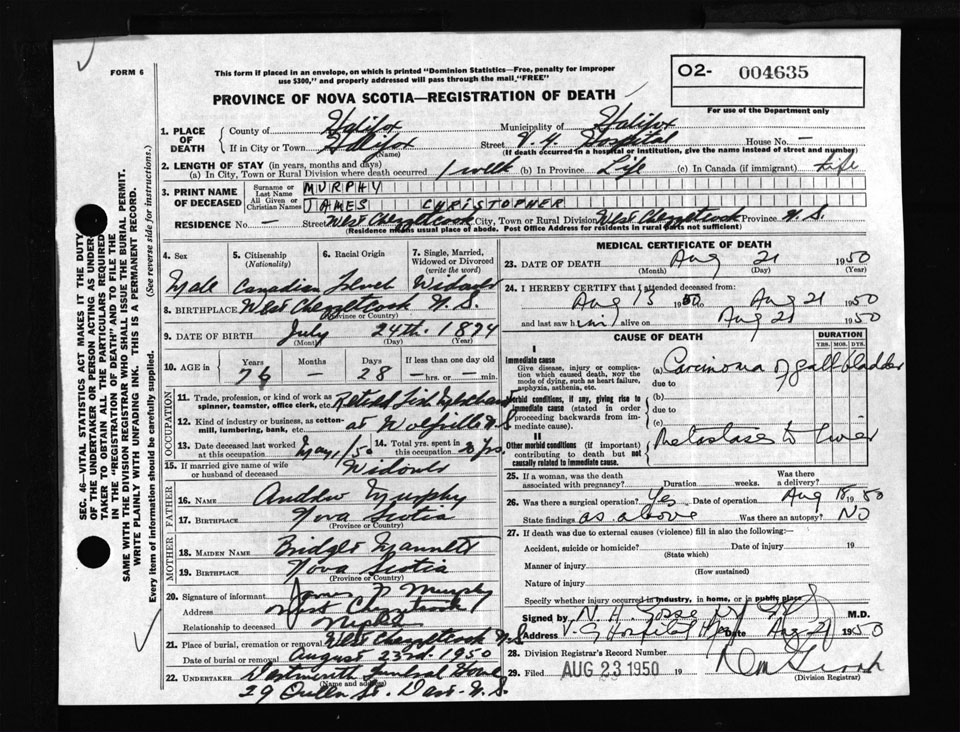 FORM 6
This form if placed in an envelope, on which is printed "Dominion Statistics—Free, penalty for improper
use $300," and properly addressed will pass through the mail, "FREE"
O2- 004635
For use of the Department only
PROVINCE OF NOVA SCOTIA—REGISTRATION OF DEATH
1. PLACE OF DEATH
County of Halifax Municipality of Halifax
If in City or Town Halifax (Name) Street V. G. Hospital House No. —
(If death occurred in a hospital or institution, give the name instead of street and number)
2. LENGTH OF STAY (in years, months and days)
(a) In City, Town or Rural Division where death occurred 1 week (b) In Province Life (c) In Canada (if immigrant) Life
3. PRINT NAME OF DECEASED
Surname or Last Name MURPHY
All Given or Christian Names JAMES CHRISTOPHER
RESIDENCE No. — Street West Chezzetcook City, Town or Rural Division West Chezzetcook Province N. S.
(Residence means usual place of abode. Post Office Address for residents in rural parts not sufficient)
4. Sex Male
5. Citizenship (Nationality) Canadian
6. Racial Origin
7. Single, Married, Widowed or Divorced (write the word) Widower
8. BIRTHPLACE West Chezzetcook N. S.
(Province or Country)
9. DATE OF BIRTH July 24th. 1874
(Month) (Day) (Year)
10. AGE in Years 76 Months — Days 28 If less than one day old — hrs. or — min.
OCCUPATION
11. Trade, profession, or kind of work as spinner, teamster, office clerk, etc. Retired Fish Merchant
12. Kind of industry or business, as cotton-mill, lumbering, bank, etc. at Wolfville N.S.
13. Date deceased last worked at this occupation May 1/50
14. Total yrs. spent in this occupation 20 yrs.
15. If married give name of wife or husband of deceased Widower
FATHER
16. NAME Andrew Murphy
17. BIRTHPLACE Nova Scotia
(Province or Country)
MOTHER
18. MAIDEN NAME Bridget Mannett
19. BIRTHPLACE Nova Scotia
(Province or Country)
20. Signature of informant James P Murphy
Address West Chezzetcook
Relationship to deceased Nephew
21. Place of burial, cremation or removal West Chezzetcook N.S.
Date of burial or removal August 23rd. 1950
22. UNDERTAKER Dartmouth Funeral Home
(Name and address)
29 Queen St. Dart. N.S.
MEDICAL CERTIFICATE OF DEATH
23. DATE OF DEATH Aug 21 1950
(Month) (Day) (Year)
24. I HEREBY CERTIFY that I attended deceased from:
Aug 15 1950 to Aug 21 1950
and last saw him alive on Aug 21 1950
CAUSE OF DEATH
DURATION
YRS. MOS. DYS.
I
Immediate cause
Give disease, injury or complication which caused death, NOT the mode of dying, such as heart failure, asphyxia, asthenia, etc.
(a) Carcinoma of gall bladder
due to
Morbid conditions, if any, giving rise to immediate cause (stated in order proceeding backwards from immediate cause).
(b)
due to
(c)
II
Other morbid conditions (if important) contributing to death but not causally related to immediate cause.
Metastases to liver
25. If a woman, was the death associated with pregnancy? Duration weeks. Was there a delivery?
26. Was there a surgical operation? Yes Date of operation Aug 18 1950
State findings as above Was there an autopsy? NO
27. If death was due to external causes (violence) fill in also the following:—
Accident, suicide or homicide? Date of injury 19
(State which)
Manner of injury
(How sustained)
Nature of injury
Specify whether injury occurred in industry, in home, or in public place
Signed by N. H. Gosse M.D.
Address V. G. Hospital Hfx Date Aug 21 1950
28. Division Registrar's Record Number
29. Filed AUG 23 1950 19
(Division Registrar)
SEC. 46—VITAL STATISTICS ACT MAKES IT THE DUTY
OF THE UNDERTAKER OR PERSON ACTING AS UNDERTAKER
TO OBTAIN ALL THE PARTICULARS REQUIRED
IN THE "REGISTRATION OF DEATH" AND TO FILE THE
SAME WITH THE DIVISION REGISTRAR WHO SHALL ISSUE THE BURIAL PERMIT.
WRITE PLAINLY WITH UNFADING INK. THIS IS A PERMANENT RECORD.
Every item of information should be carefully supplied. (See reverse side for instructions.)